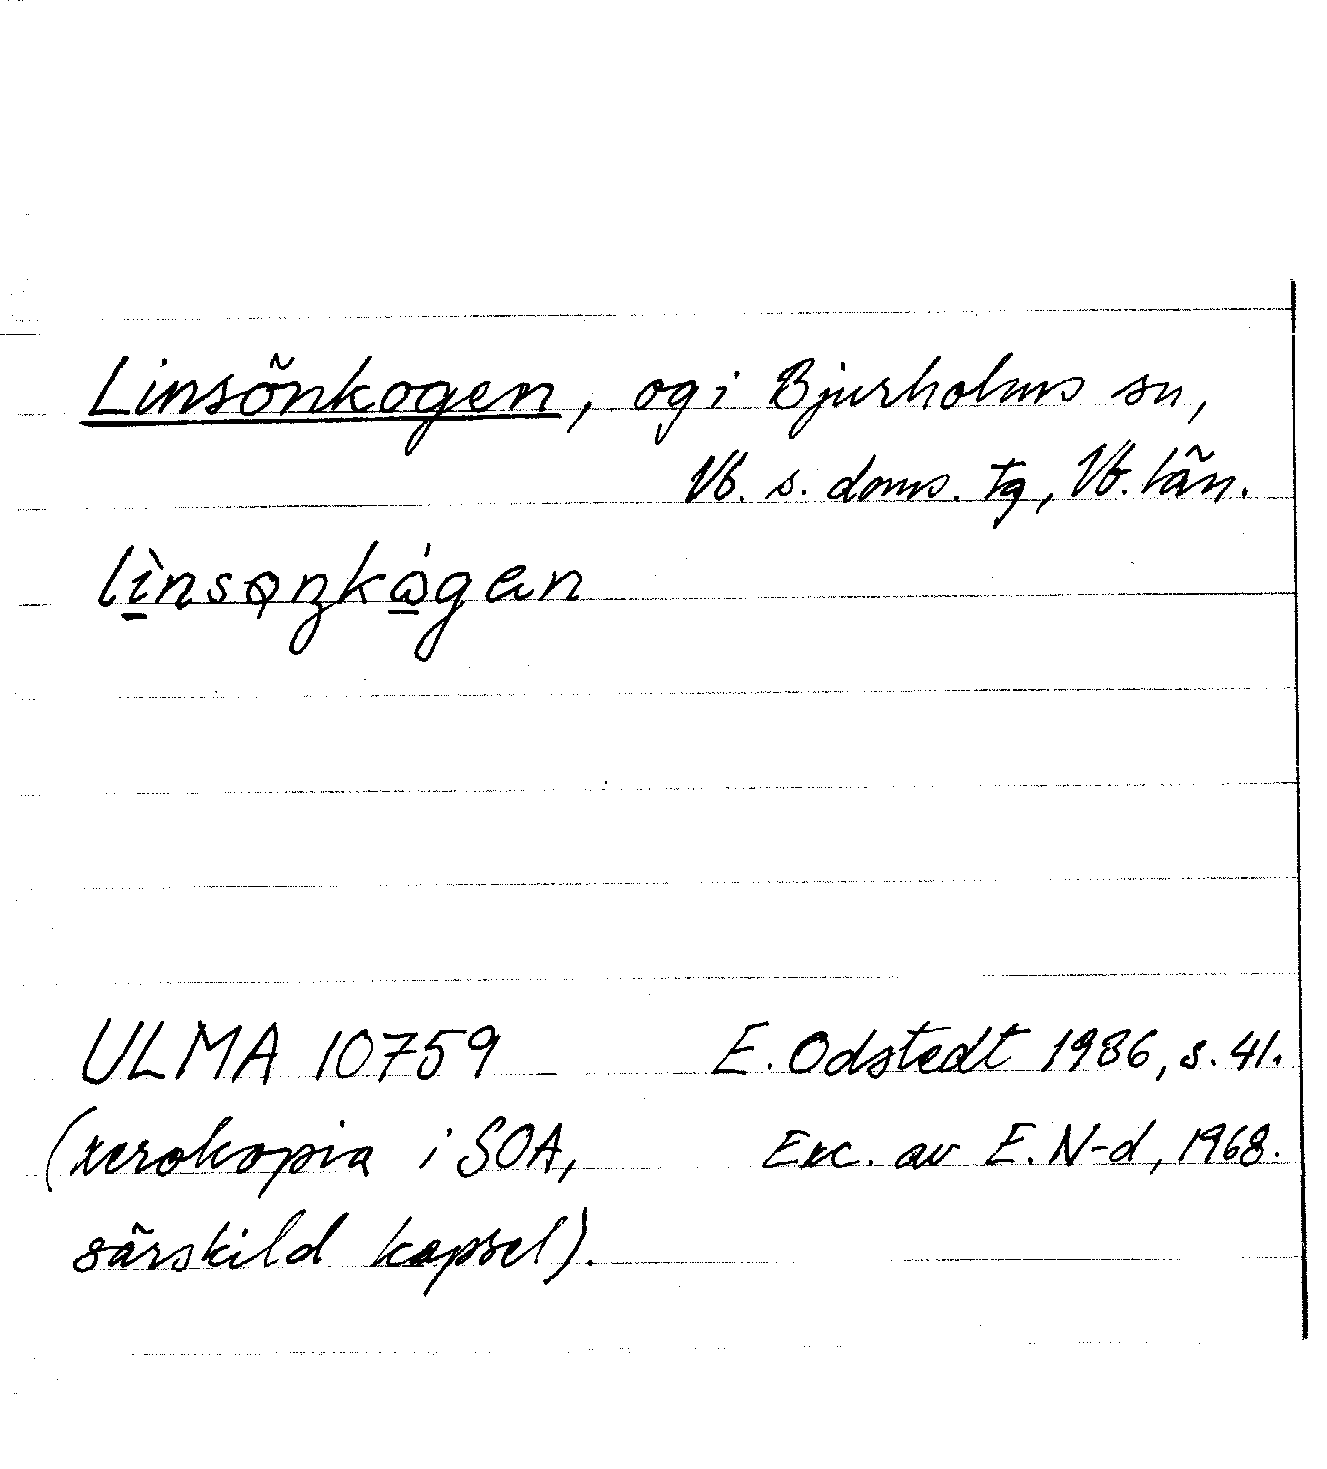 Linsönkogen, og i Bjurholms sn,
Vb. s. doms. tg, Vb. län.
lìnsǫŋkå̀gen
ULMA 10759 E. Odstedt 1986, s. 41.
(xerokopia i SOA, Exc. av E. N-d, 1968.
särskild kapsel).